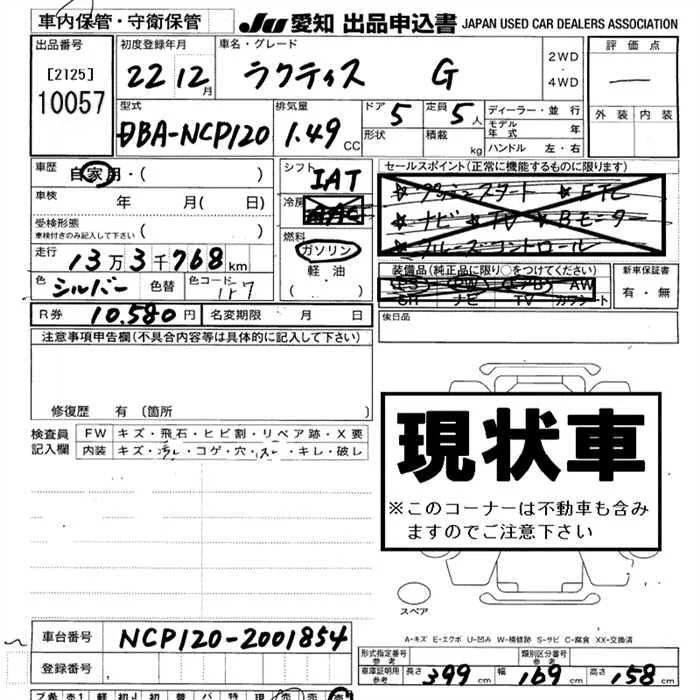 車内保管・守衛保管 JU 愛知 出品申込書 JAPAN USED CAR DEALERS ASSOCIATION
出品番号 [2125] 10057
初度登録年月 22 12月
車名・グレード ラクティス G
2WD・4WD
評価点 —
外装 内装
型式 DBA-NCP120
排気量 1.49 CC
ドア 5
形状
定員 5人
積載 kg
ディーラー・並行
モデル年式 年
ハンドル 左・右
車歴 自家用・( )
車検 年 月( 日)
受検形態 車検付きのみ記入して下さい ( )
走行 13万3千768km
色 シルバー 色替 色コード 1F7
シフト IAT
冷房 AAC
燃料 ガソリン
軽油
( ・ )
セールスポイント(正常に機能するものに限ります)
☆プッシュスタート ☆ETC
☆ナビ☆TV☆Bモニター
☆クルーズコントロール
装備品(純正品に限り○をつけてください)
PS PW エアB AW
SR ナビ TV カワシート
新車保証書
有・無
R券 10.580円 名変期限 月 日
後日品
注意事項申告欄(不具合内容等は具体的に記入して下さい)
修復歴 有 〔箇所 〕
検査員記入欄
FW キズ・飛石・ヒビ割・リペア跡・X要
内装 キズ・汚レ・コゲ・穴・スレ・キレ・破レ
現状車
※このコーナーは不動車も含み
ますのでご注意下さい
スペア
A-キズ E-エクボ U-凹み W-補修跡 S-サビ C-腐食 XX-交換済
車台番号 NCP120-2001854
登録番号
形式指定番号 参考
類別区分番号 参考
車庫証明用 参考 長さ 399cm 幅 169cm 高さ 158cm